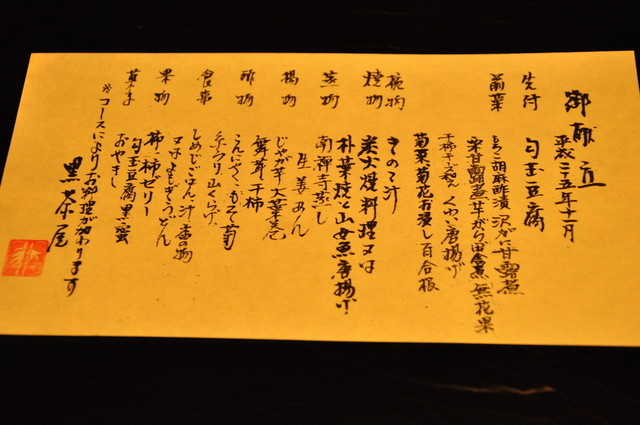 御献立
平成二十五年十一月
先付 勾玉豆腐
前菜 もろこ胡麻酢漬 沢がに甘露煮
栗甘露煮 芋がら田舎煮 無花果
干柿チーズ くわい唐揚げ
菊菜菊花お浸し 百合根
椀物 きのこ汁
焼物 炭火焼料理又は
朴葉焼と山女魚唐揚げ
蒸物 南禅寺蒸し
生姜あん
揚物 じゃが芋大葉見
舞茸、干柿
酢物 こんにゃく、もって菊
糸うり、山くらげ
食事 しめじごはん、汁、香の物
又はよもぎうどん
果物 柿と柿ゼリー
菓子 勾玉豆腐黒蜜
おやき
※コースによりお料理が加わります
黒茶屋